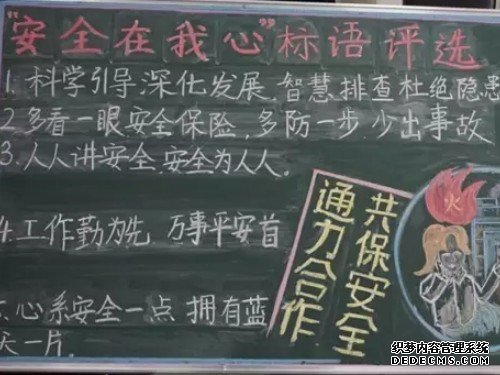 "安全在我心"标语评选
1. 科学引导,深化发展 智慧排查杜绝隐患
2.多看一眼安全保险,多防一步 少出事故
3.人人讲安全,安全为人人。
4.工作勤为先 万事平安首
心系安全一点 拥有蓝
天一片。
共保安全
通力合作
火
织梦内容管理系统
DEDECMS.COM